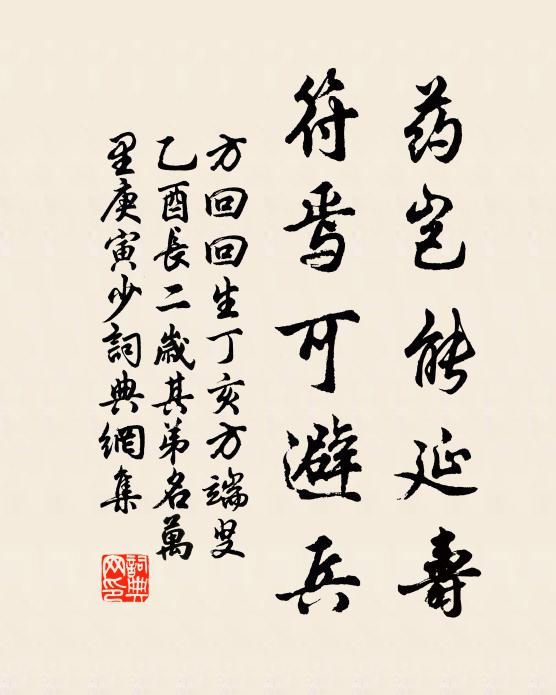 药岂能延壽
符焉可避兵
方回回生丁亥方端叟
乙酉長二歲其弟名萬
里庚寅少詞典網集
詞典网印